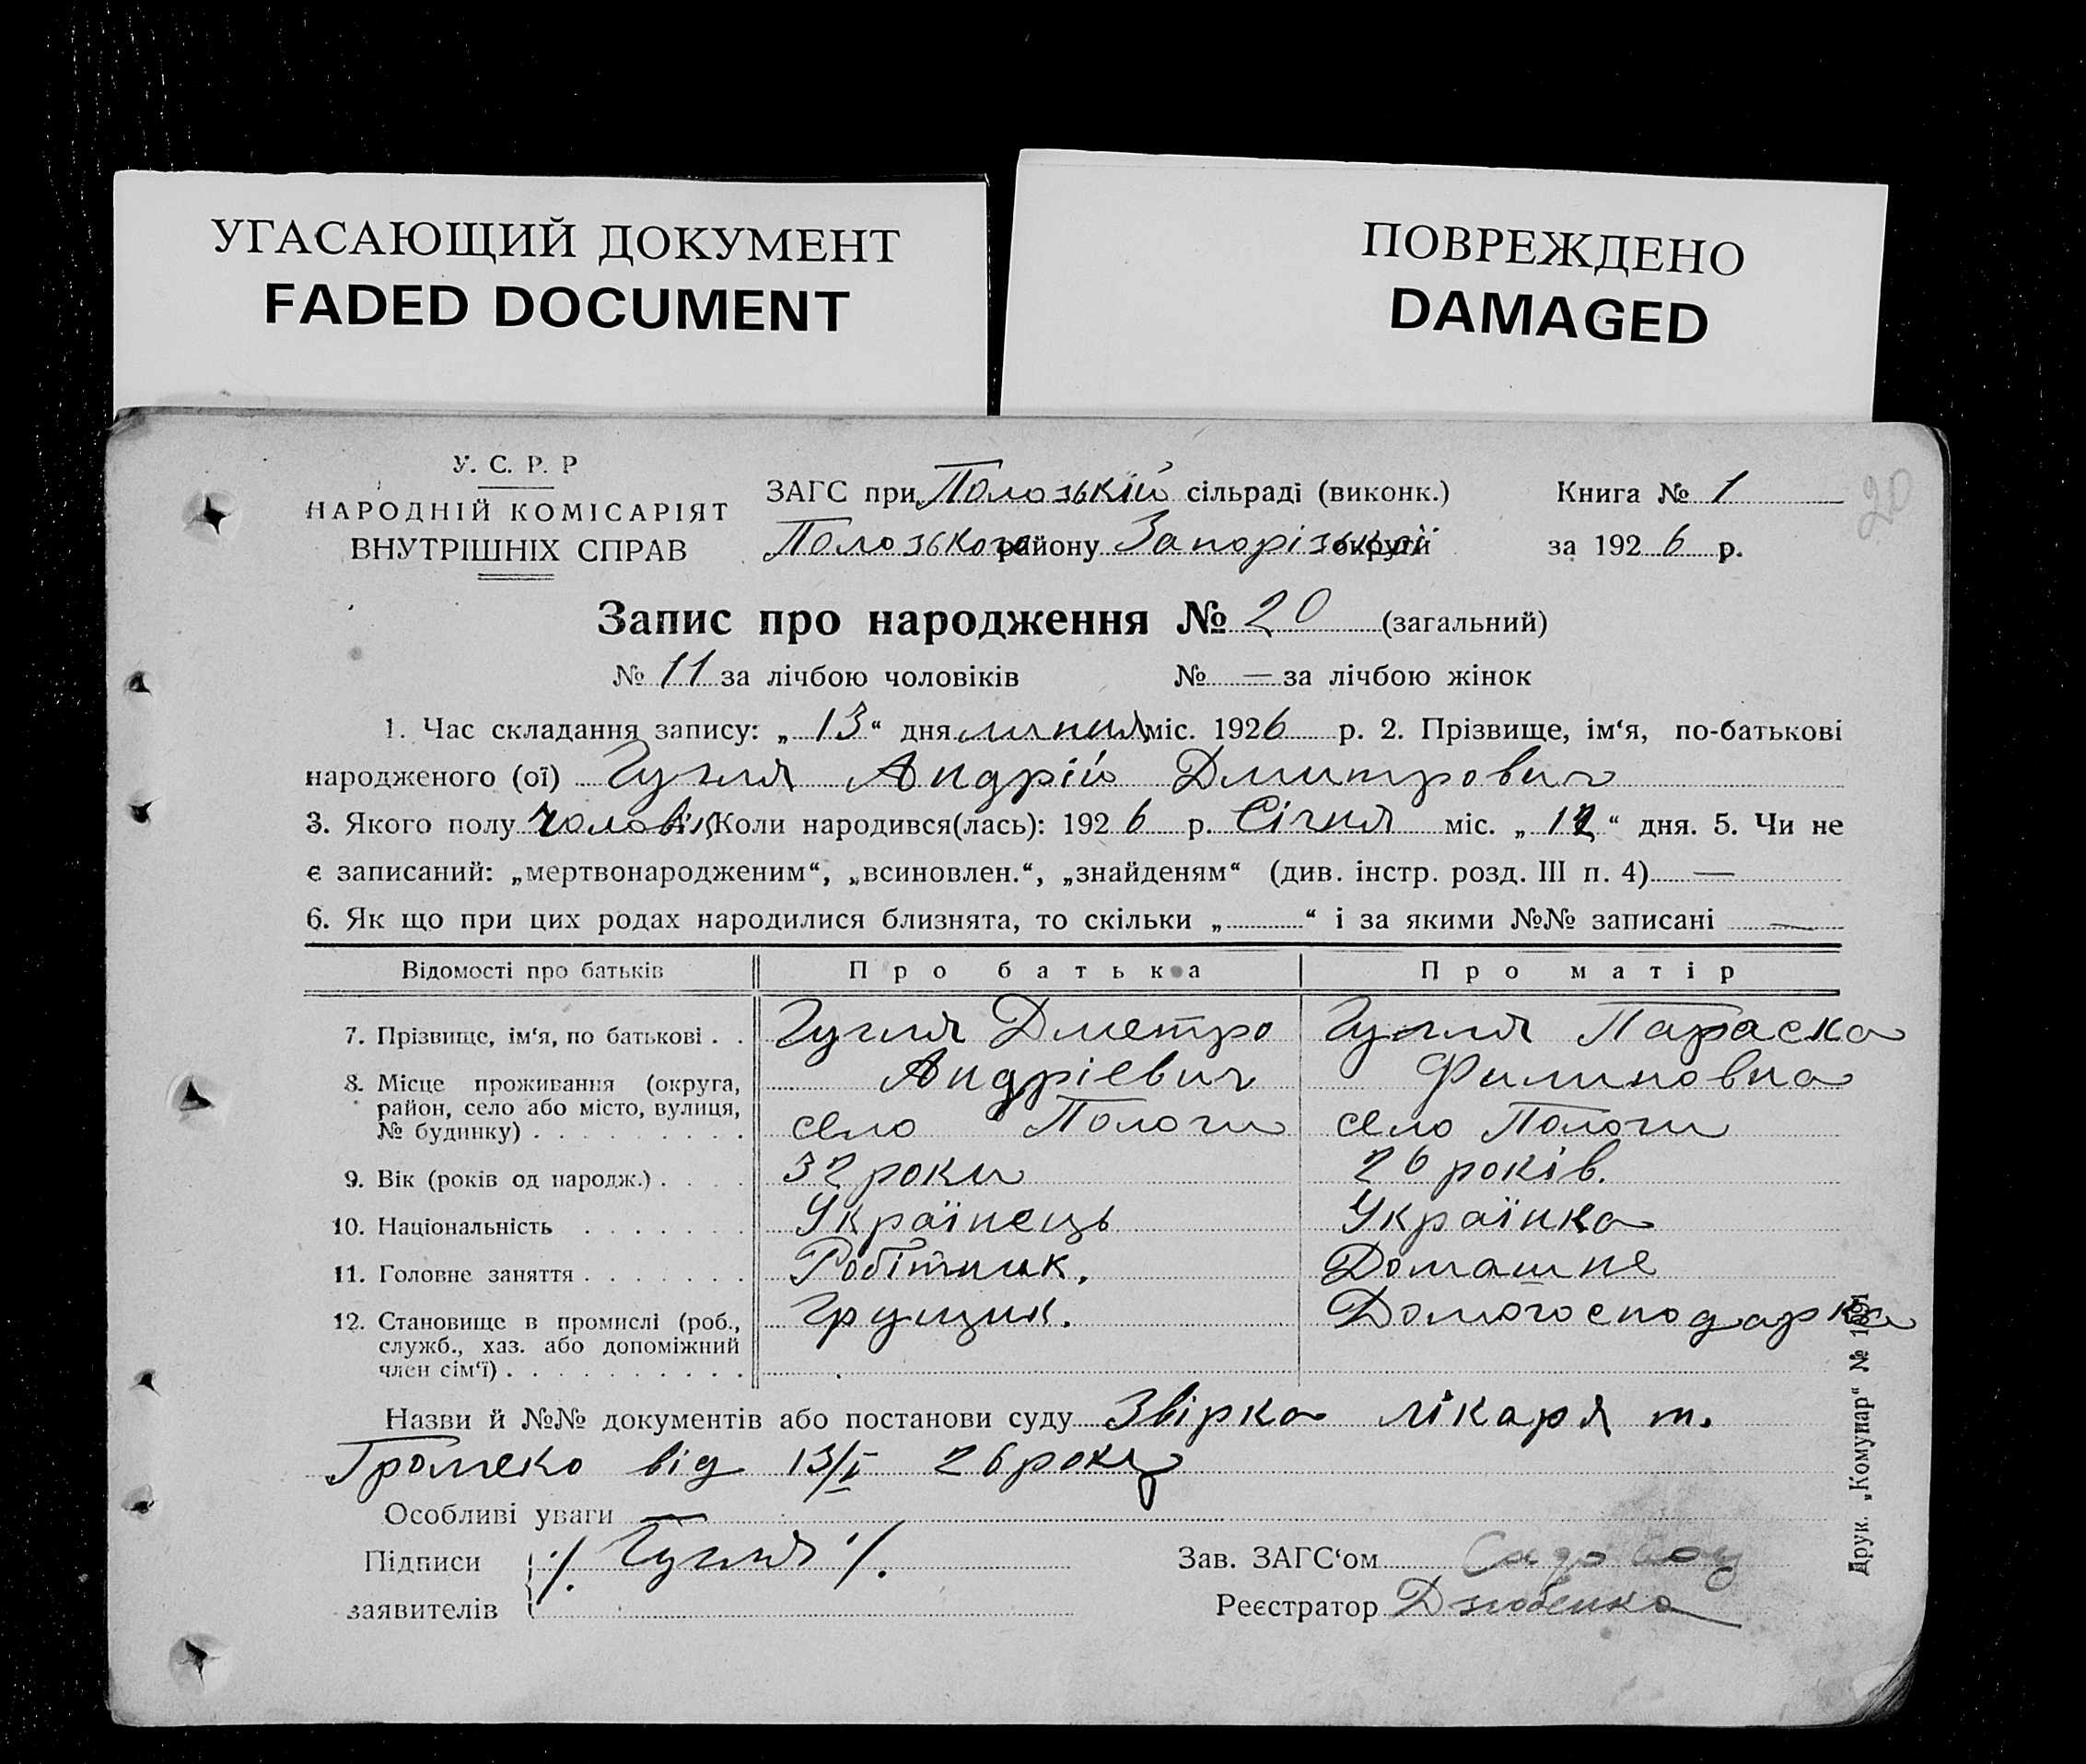 УГАСАЮЩИЙ ДОКУМЕНТ
FADED DOCUMENT
ПОВРЕЖДЕНО
DAMAGED
20
У. С. Р. Р
НАРОДНІЙ КОМІСАРІЯТ
ВНУТРІШНІХ СПРАВ
ЗАГС при Полозькій сільраді (виконк.)
Полозького району Запорізької округи
Книга № 1
за 1926 р.
Запис про народження № 20 (загальний)
№ 11 за лічбою чоловіків № — за лічбою жінок
1. Час складання запису: „ 13 “ дня міс. 1926 р. 2. Прізвище, ім‘я, по-батькові
народженого (ої) Гугля Андрій Дмитрович
3. Якого полу чоловік Коли народився(лась): 1926 р. Січня міс. „ 12 “ дня. 5. Чи не
є записаний: „мертвонародженим“, „всиновлен.“, „знайденям“ (див. інстр. розд. III п. 4) —
6. Як що при цих родах народилися близнята, то скільки „ “ і за якими №№ записані —
Відомості про батьків Про батька Про матір
7. Прізвище, ім‘я, по батькові . . Гугля Дметро Гугля Параска
Андрієвич Филиповна
8. Місце проживання (округа,
район, село або місто, вулиця,
№ будинку) . . . . . . . . . село Пологи село Пологи
9. Вік (років од народж.) . . . . 32 роки 26 років.
10. Національність . . . . . . . Українець Українка
11. Головне заняття . . . . . . . Робітник. Домашне
12. Становище в промислі (роб., Грущик. Домогосподарка
служб., хаз. або допоміжний
член сім‘ї) . . . . . . . . . .
Назви й №№ документів або постанови суду Звірка лікаря т.
Громеко від 13/I 26 року
Особливі уваги —
Підписи ./. Гугля ./.
заявителів
Зав. ЗАГС‘ом
Реєстратор Дзюбенко
Друк. „Комунар“ №